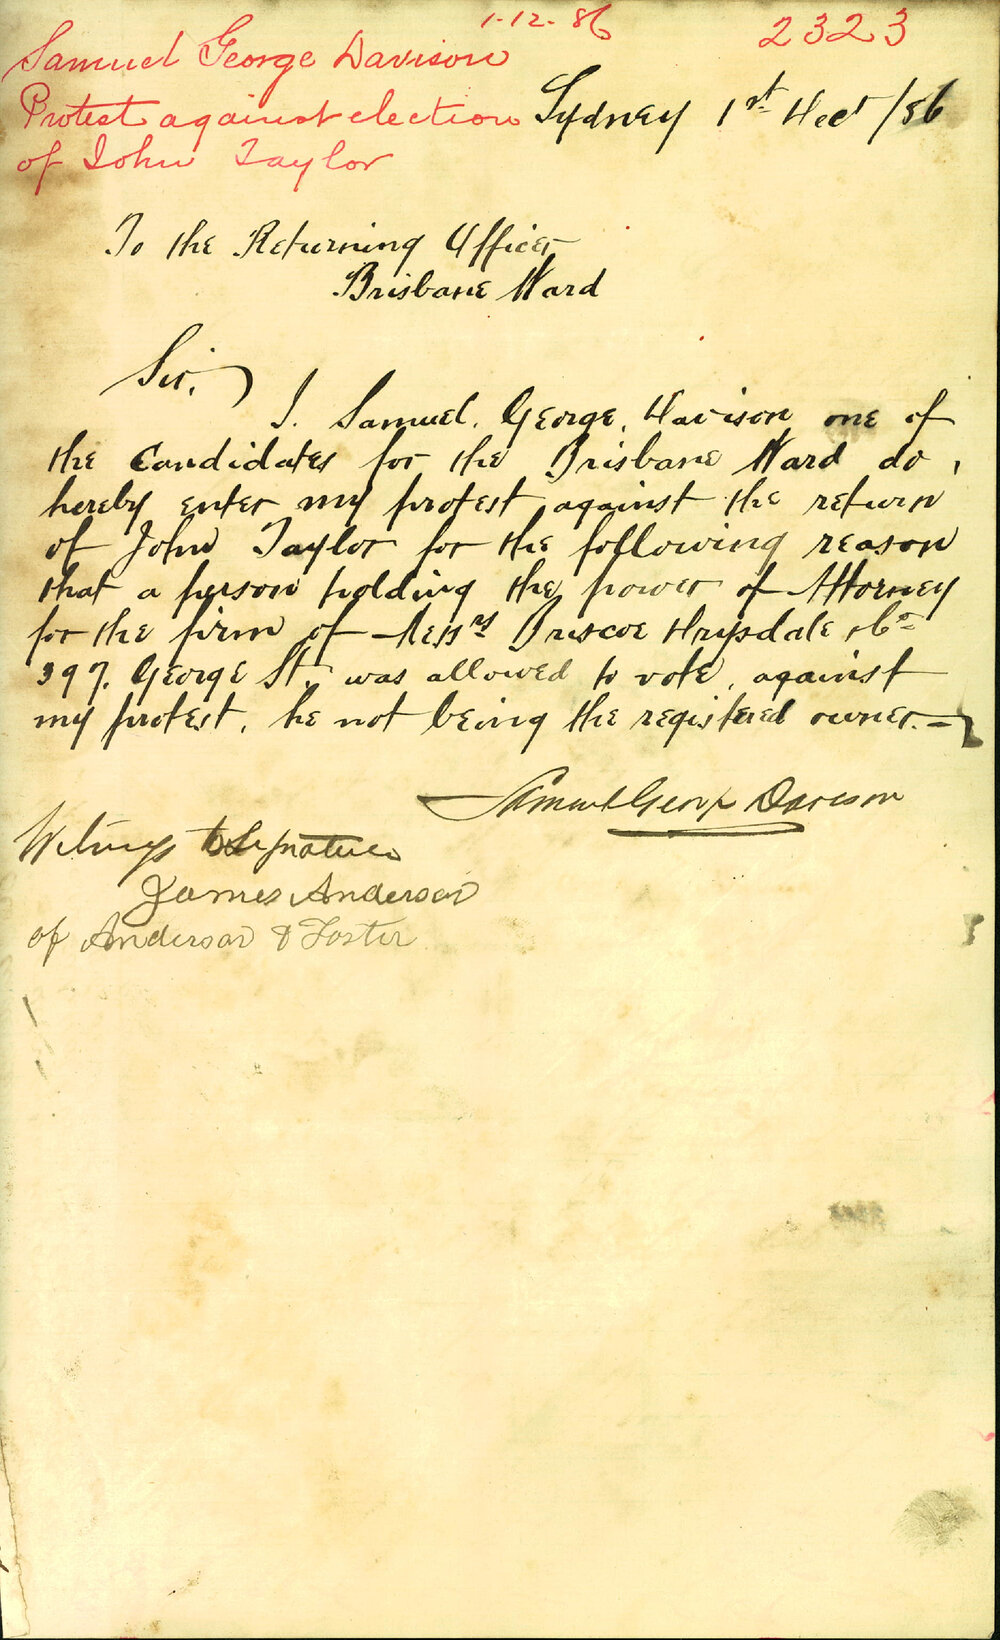 1-12-86 2323
Samuel George Davison
Protest against election
of John Taylor
Sydney 1st Decr /86
To the Returning Officer
Brisbane Ward
Sir,
I. Samuel. George. Davison one of
the Candidates for the Brisbane Ward do,
hereby enter my protest against the return
of John Taylor for the following reason
that a person holding the power of Attorney
for the firm of Messrs Briscoe Drysdale & Co
397. George St. was allowed to vote, against
my protest, he not being the registered owner.—
Samuel George Davison
Witness to Signature
James Anderson
of Anderson & Foster